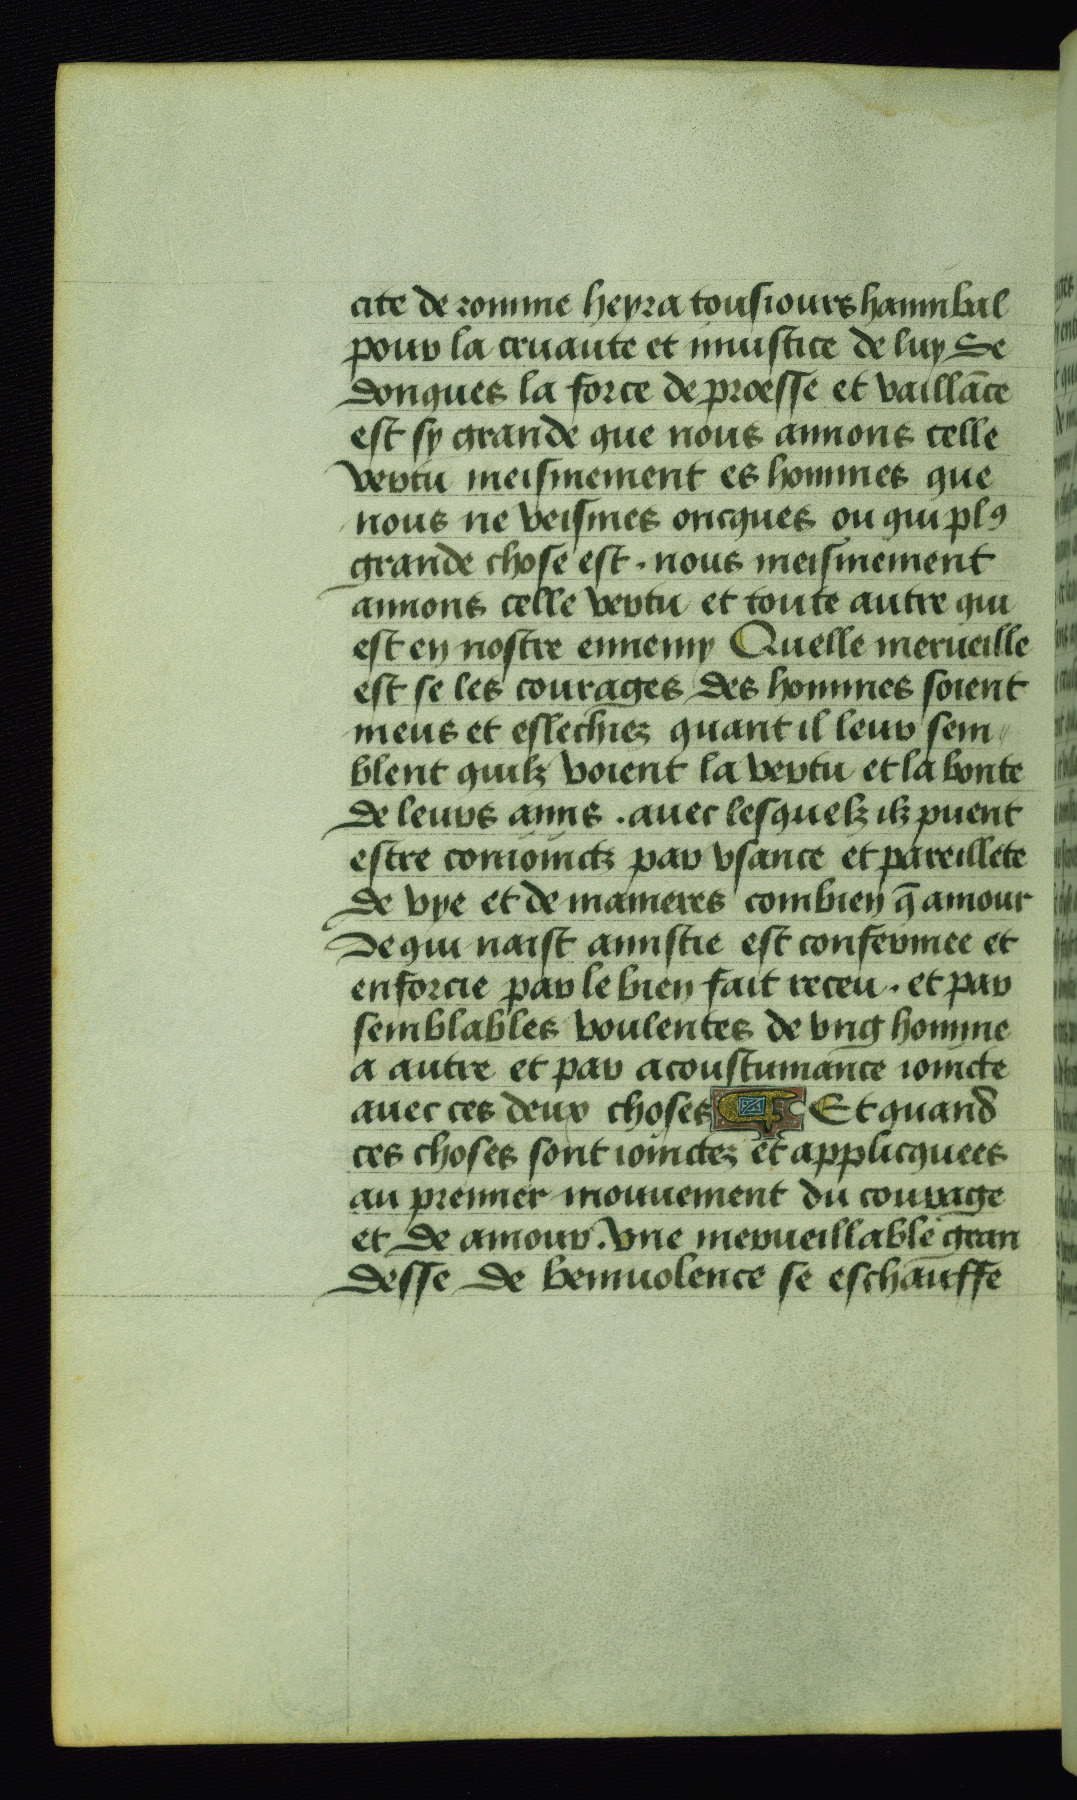 cite de romme heyra tousiours hannibal
pour la cruaute et iniustice de luy Se
donques la force de proesse et vaillāce
est sy grande que nous amions celle
vertu meismement es hommes que
nous ne veismes oncques ou qui plꝰ
grande chose est . nous meismement
amions celle vertu et toute autre qui
est en nostre ennemy Quelle merueille
est se les courages des hommes soient
meus et esleichiez quant il leur sem
blent quilz voient la vertu et la bonte
de leurs amis . auec lesquelz ilz puent
estre conioinctz par vsance et pareillete
de vye et de manieres combien q̄ amour
de qui naist amistie est confermee et
enforcie par le bien fait receu . et par
semblables voulentes de vng homme
a autre et par acoustumance ioincte
auec ces deux choses Et quand
ces choses sont ioinctez et applicquees
au premier mouuement du courage
et de amour . vne merueillable gran
desse de beniuolence se eschauffe